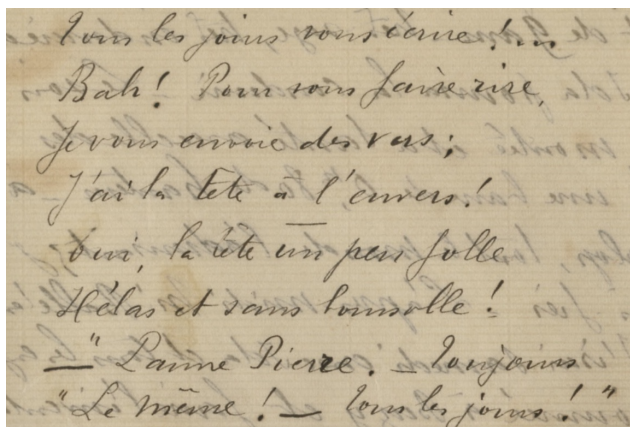 tous les jours vous écrire !...
Bah ! Pour vous faire rire,
Je vous envoie des vers ;
J'ai la tête à l'envers !
Oui, la tête un peu folle
Hélas et sans boussolle !
— " Pauvre Pierre. — Toujours
" Le même ! — Tous les jours ! "